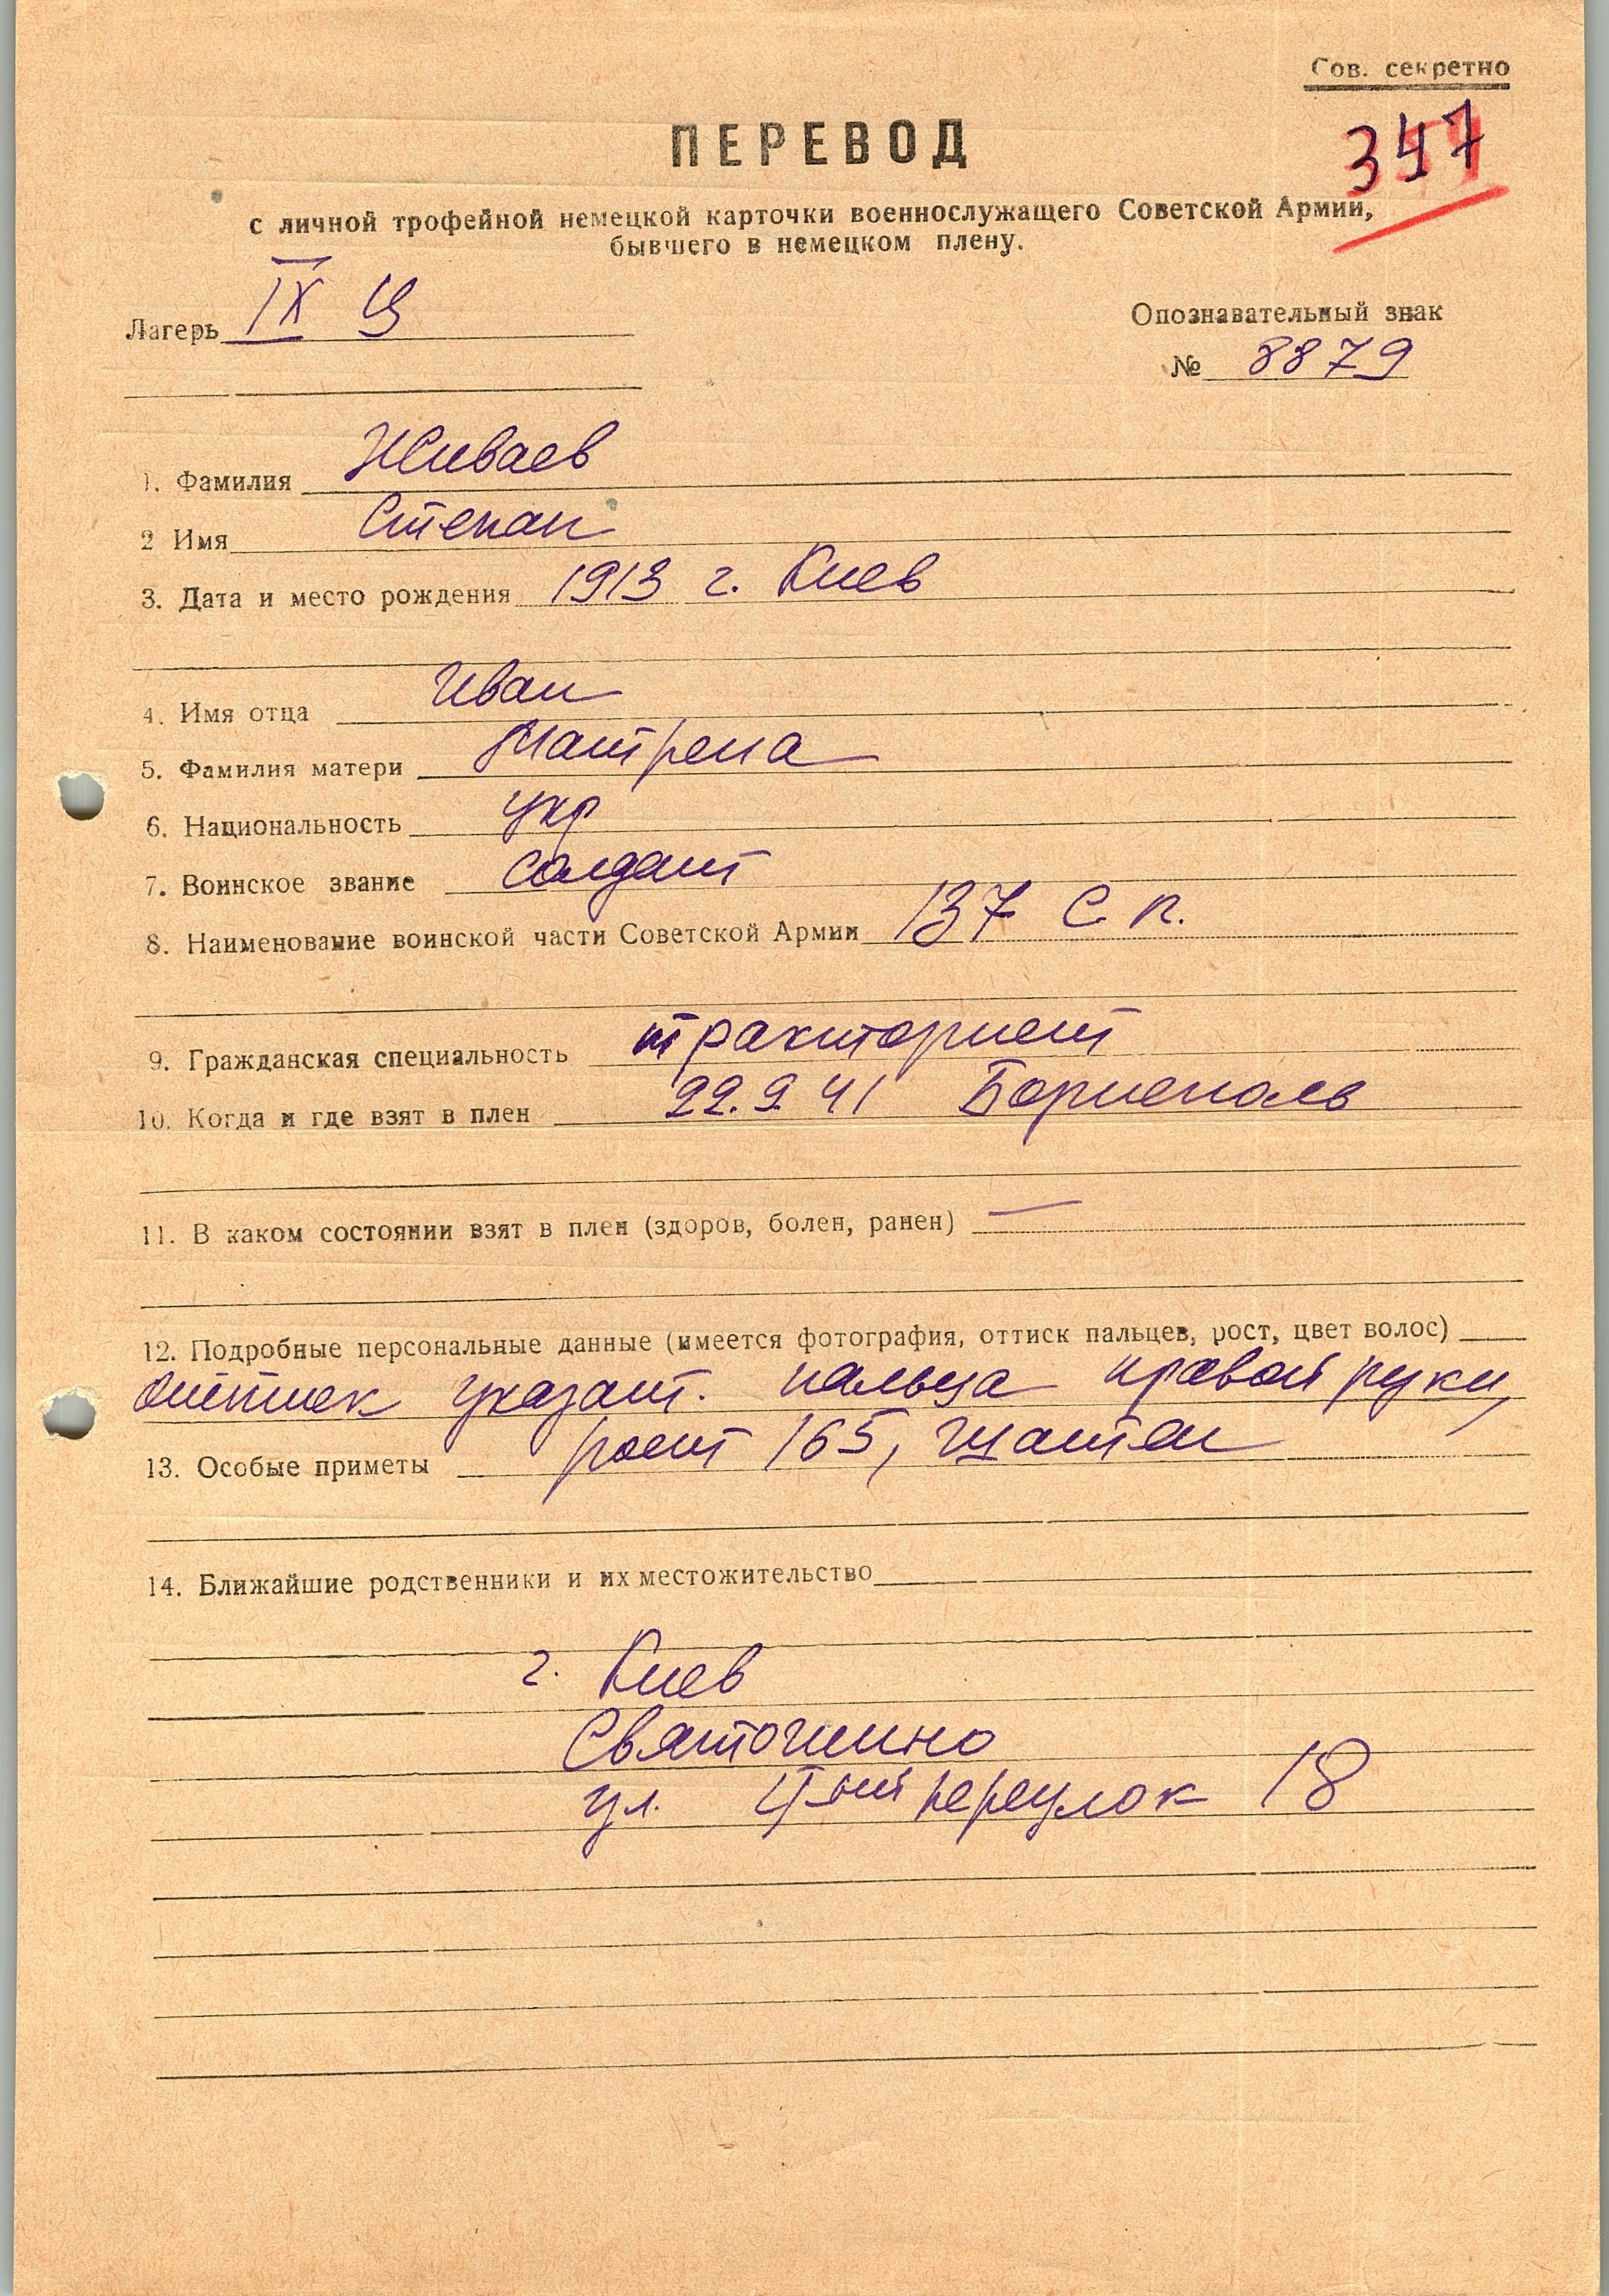 Сов. секретно
347
ПЕРЕВОД
с личной трофейной немецкой карточки военнослужащего Советской Армии,
бывшего в немецком плену.
Лагерь IX Ц
Опознавательный знак
№ 8879
1. Фамилия Живаев
2 Имя Степан
3. Дата и место рождения 1913 г. Киев
4. Имя отца Иван
5. Фамилия матери Матрена
6. Национальность укр
7. Воинское звание солдат
8. Наименование воинской части Советской Армии 137 с п.
9. Гражданская специальность тракторист
10. Когда и где взят в плен 22.9.41 Борисполь
11. В каком состоянии взят в плен (здоров, болен, ранен) —
12. Подробные персональные данные (имеется фотография, оттиск пальцев, рост, цвет волос)
оттиск указат. пальца правой руки,
рост 165, шатен
13. Особые приметы
14. Ближайшие родственники и их местожительство
г. Киев
Святошино
ул. 4ый переулок 18